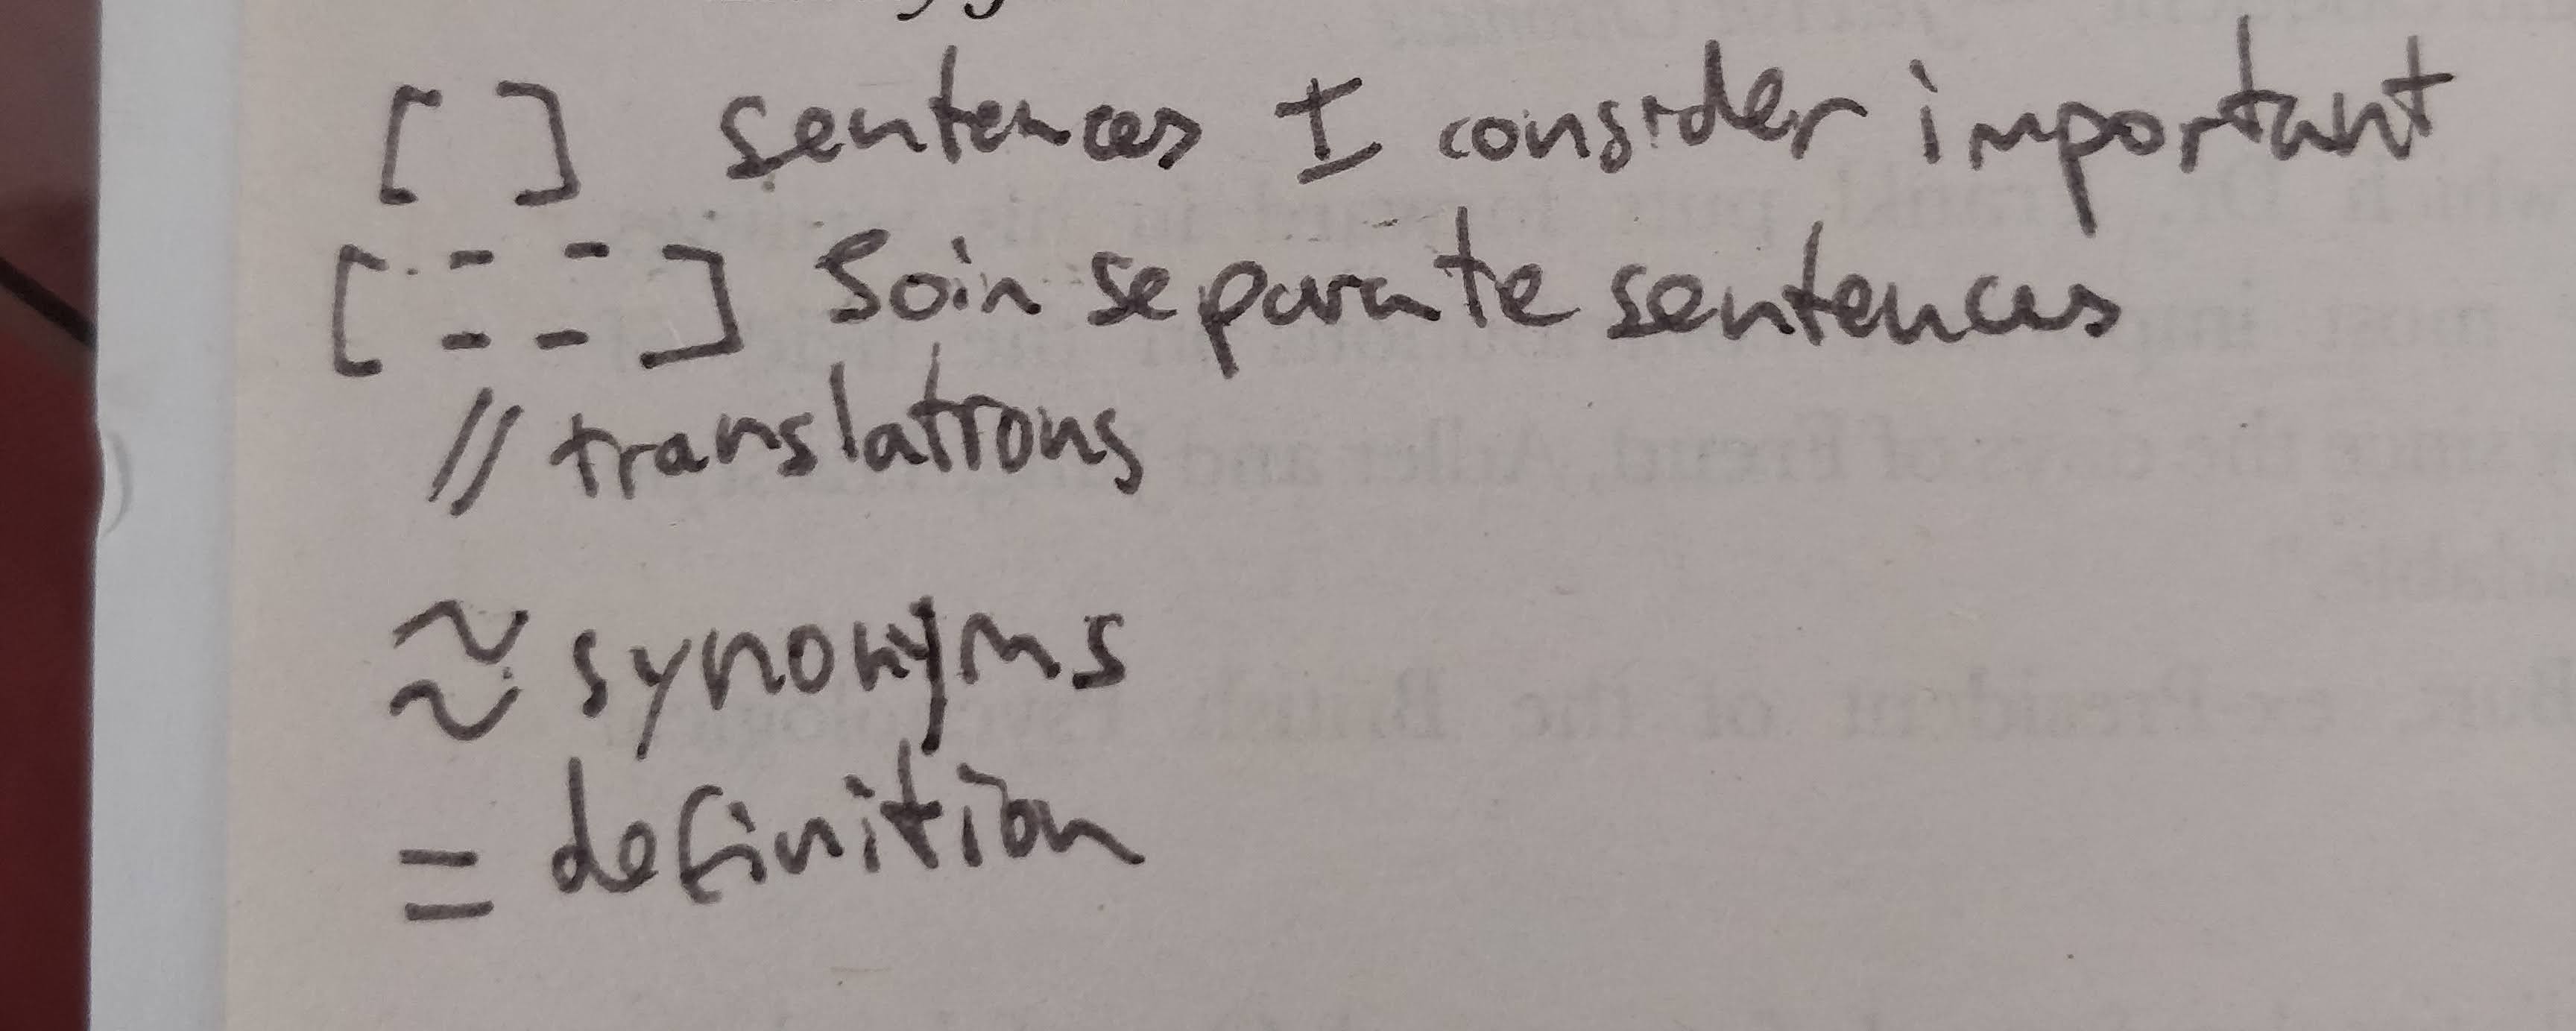 [ ] sentences I consider important
[ = = ] Join separate sentences
// translations
≈ synonyms
= definition